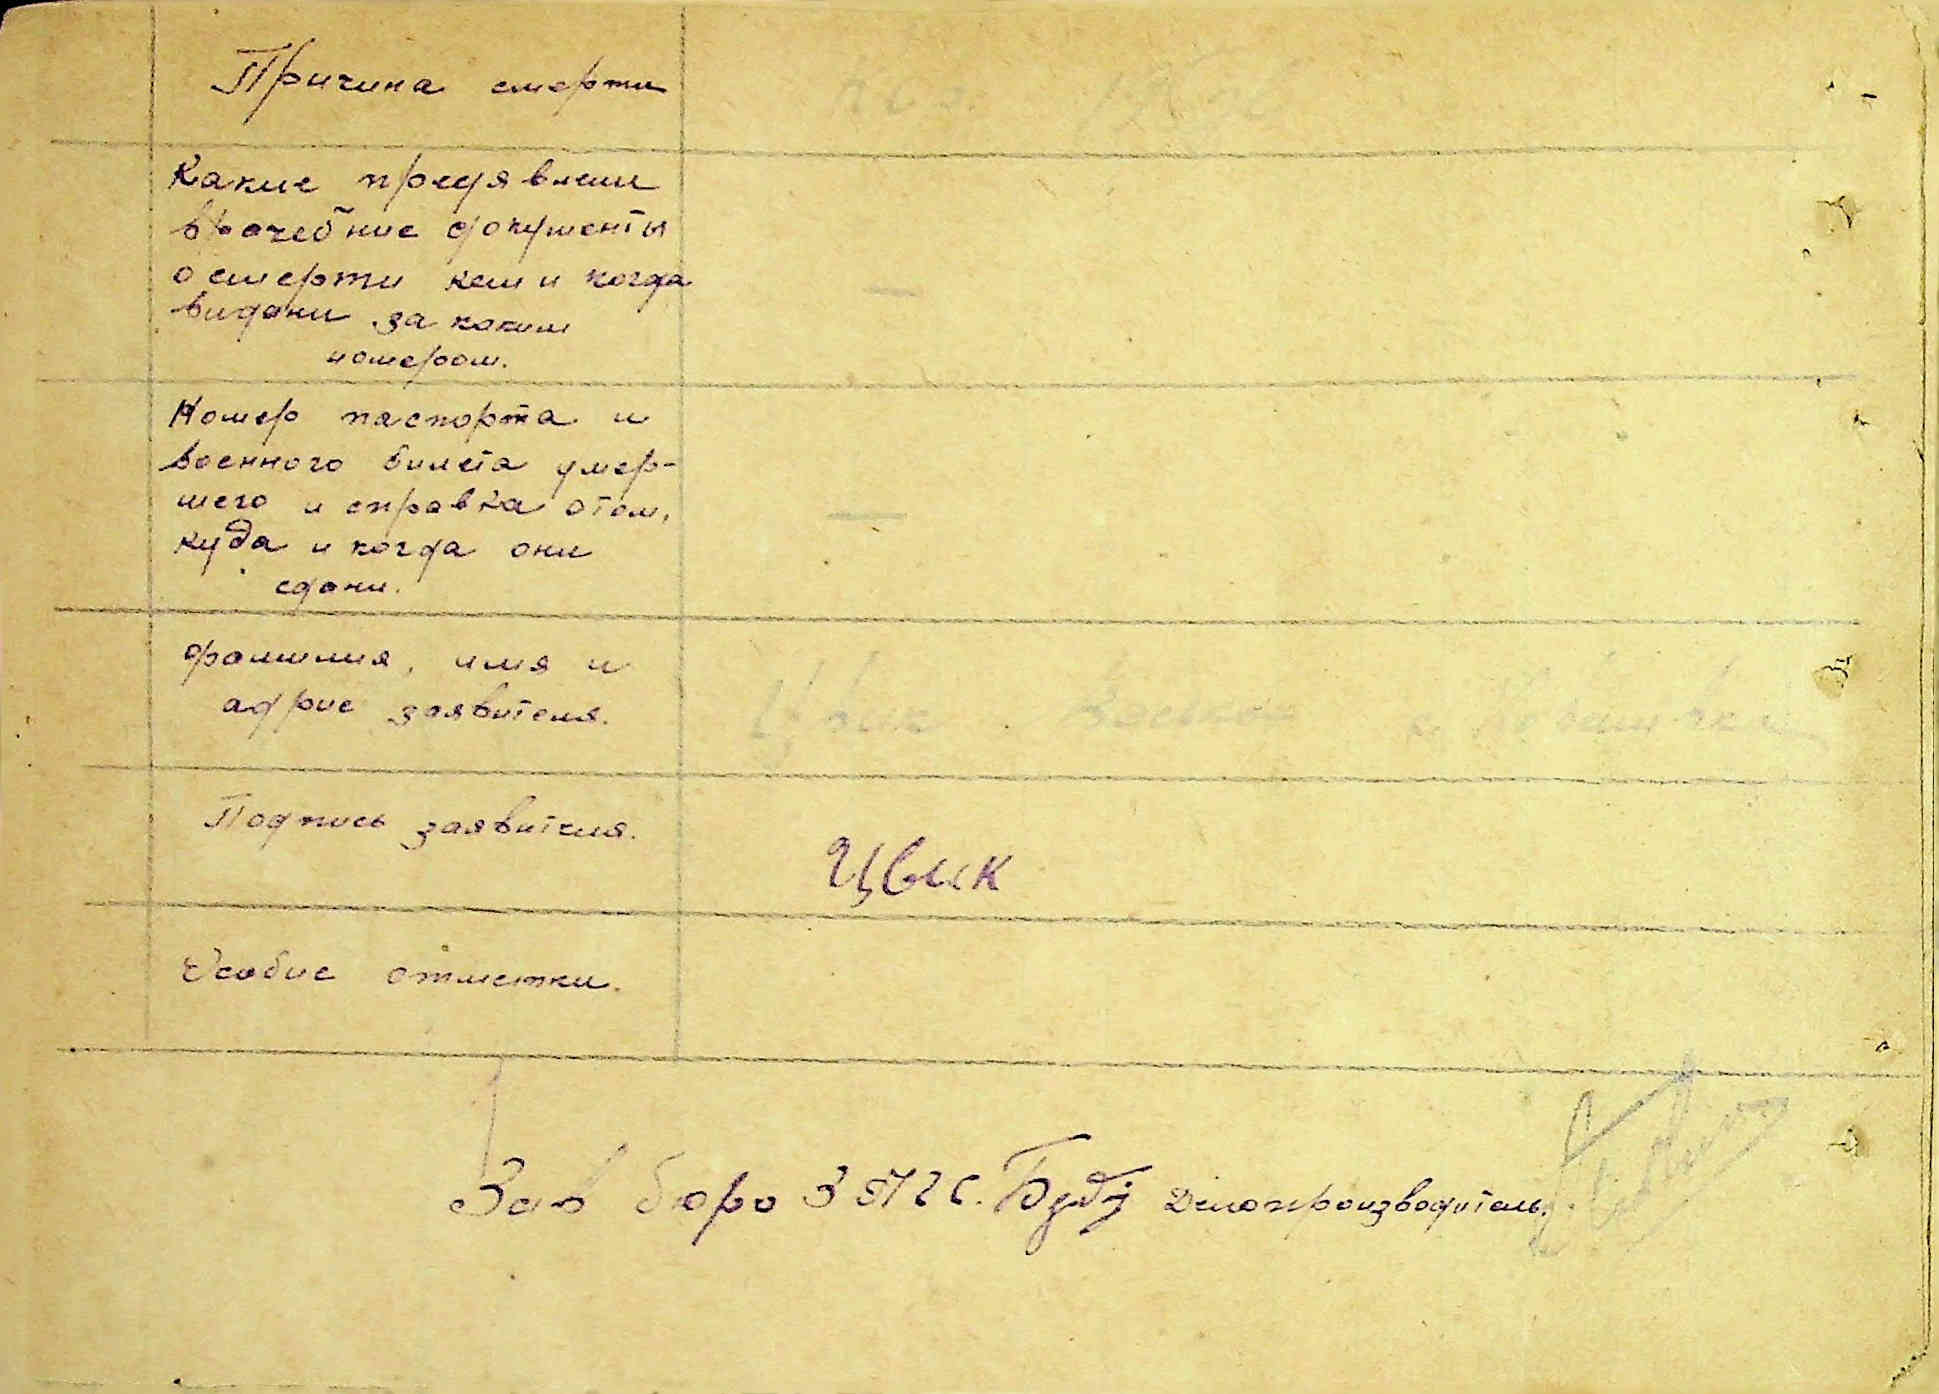 Причина смерти
Какие предявлени
врачебние документы
о смерти кем и когда
видани за каким
номером.
—
Номер паспорта и
военного билета умер-
шего и справка о том,
куда и когда они
сдани.
—
фамилия, имя и
адрис заявителя.
Цвик
Подпись заявителя.
Цвик
Особие отметки.
Зав бюро ЗАГС. Делопроизводитель.